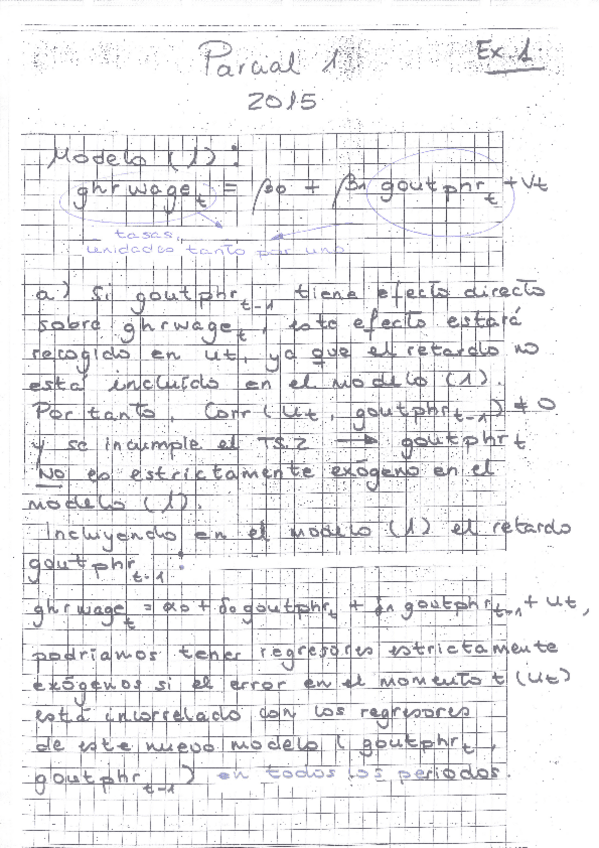 Parcial 1
Ex. 1.
2015
Modelo (1):
ghrwage_t = β0 + β1 goutphr_t + Vt
tasas,
unidades tanto por uno
a) Si goutphr_t-1 tiene efecto directo
sobre ghrwage_t, este efecto estará
recogido en ut, ya que el retardo no
está incluído en el modelo (1).
Por tanto, Corr(Ut, goutphr_t-1) ≠ 0
y se incumple el TS.2 → goutphr_t
NO es estrictamente exógeno en el
modelo (1).
Incluyendo en el modelo (1) el retardo
goutphr_t-1:
ghrwage_t = α0 + δ0 goutphr_t + δ1 goutphr_t-1 + ut,
podríamos tener regresores estrictamente
exógenos si el error en el momento t (ut)
está incorrelado con los regresores
de este nuevo modelo (goutphr_t,
goutphr_t-1) en todos los periodos.